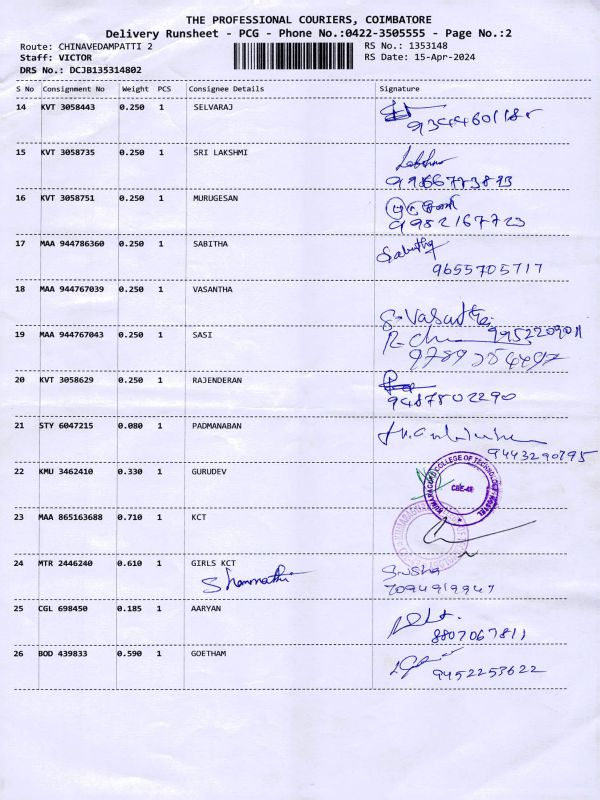 THE PROFESSIONAL COURIERS, COIMBATORE
Delivery Runsheet - PCG - Phone No.:0422-3505555 - Page No.:2
Route: CHINAVEDAMPATTI 2 RS No.: 1353148
Staff: VICTOR RS Date: 15-Apr-2024
DRS No.: DCJB135314802
S No Consignment No Weight PCS Consignee Details Signature
14 KVT 3058443 0.250 1 SELVARAJ
15 KVT 3058735 0.250 1 SRI LAKSHMI
16 KVT 3058751 0.250 1 MURUGESAN
9952167723
17 MAA 944786360 0.250 1 SABITHA Sabitha
9655705717
18 MAA 944767039 0.250 1 VASANTHA
S. Vasantha
19 MAA 944767043 0.250 1 SASI
20 KVT 3058629 0.250 1 RAJENDERAN
9487802290
21 STY 6047215 0.080 1 PADMANABAN
9443290795
22 KMU 3462410 0.330 1 GURUDEV
KUMARAGURU COLLEGE OF TECHNOLOGY HOSTEL
CBE-49
23 MAA 865163688 0.710 1 KCT
24 MTR 2446240 0.610 1 GIRLS KCT
7094919947
25 CGL 698450 0.185 1 AARYAN
8807067811
26 BOD 439833 0.590 1 GOETHAM
9452253622